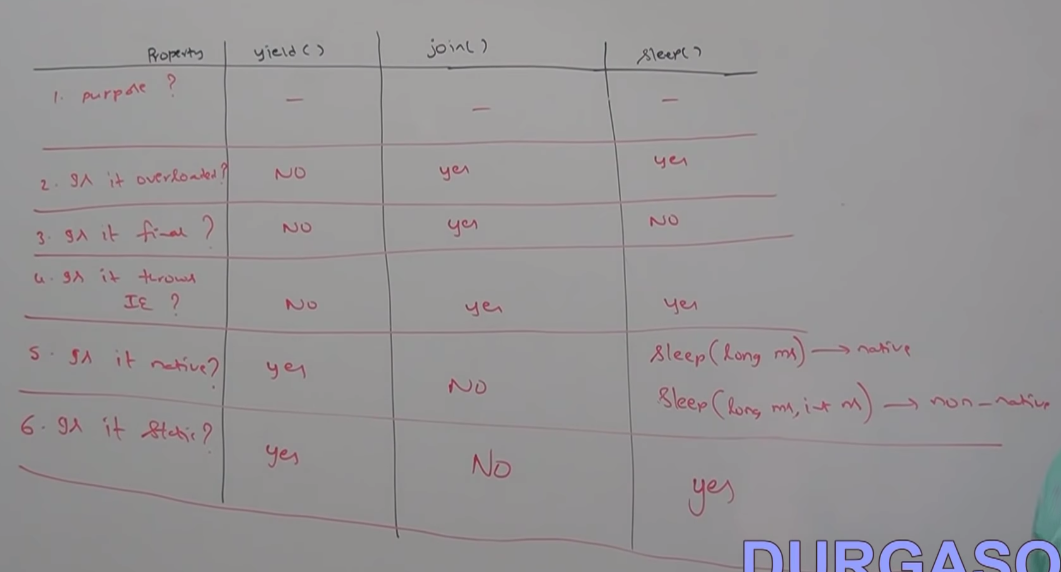 Property yield() join() sleep()
1. purpose ? — — —
2. Is it overloaded? NO yes yes
3. Is it final ? NO yes NO
4. Is it throws
IE ? NO yes yes
5. Is it native? yes NO sleep(long ms) → native
sleep(long ms, int ns) → non-native
6. Is it static? yes NO yes
DURGASO